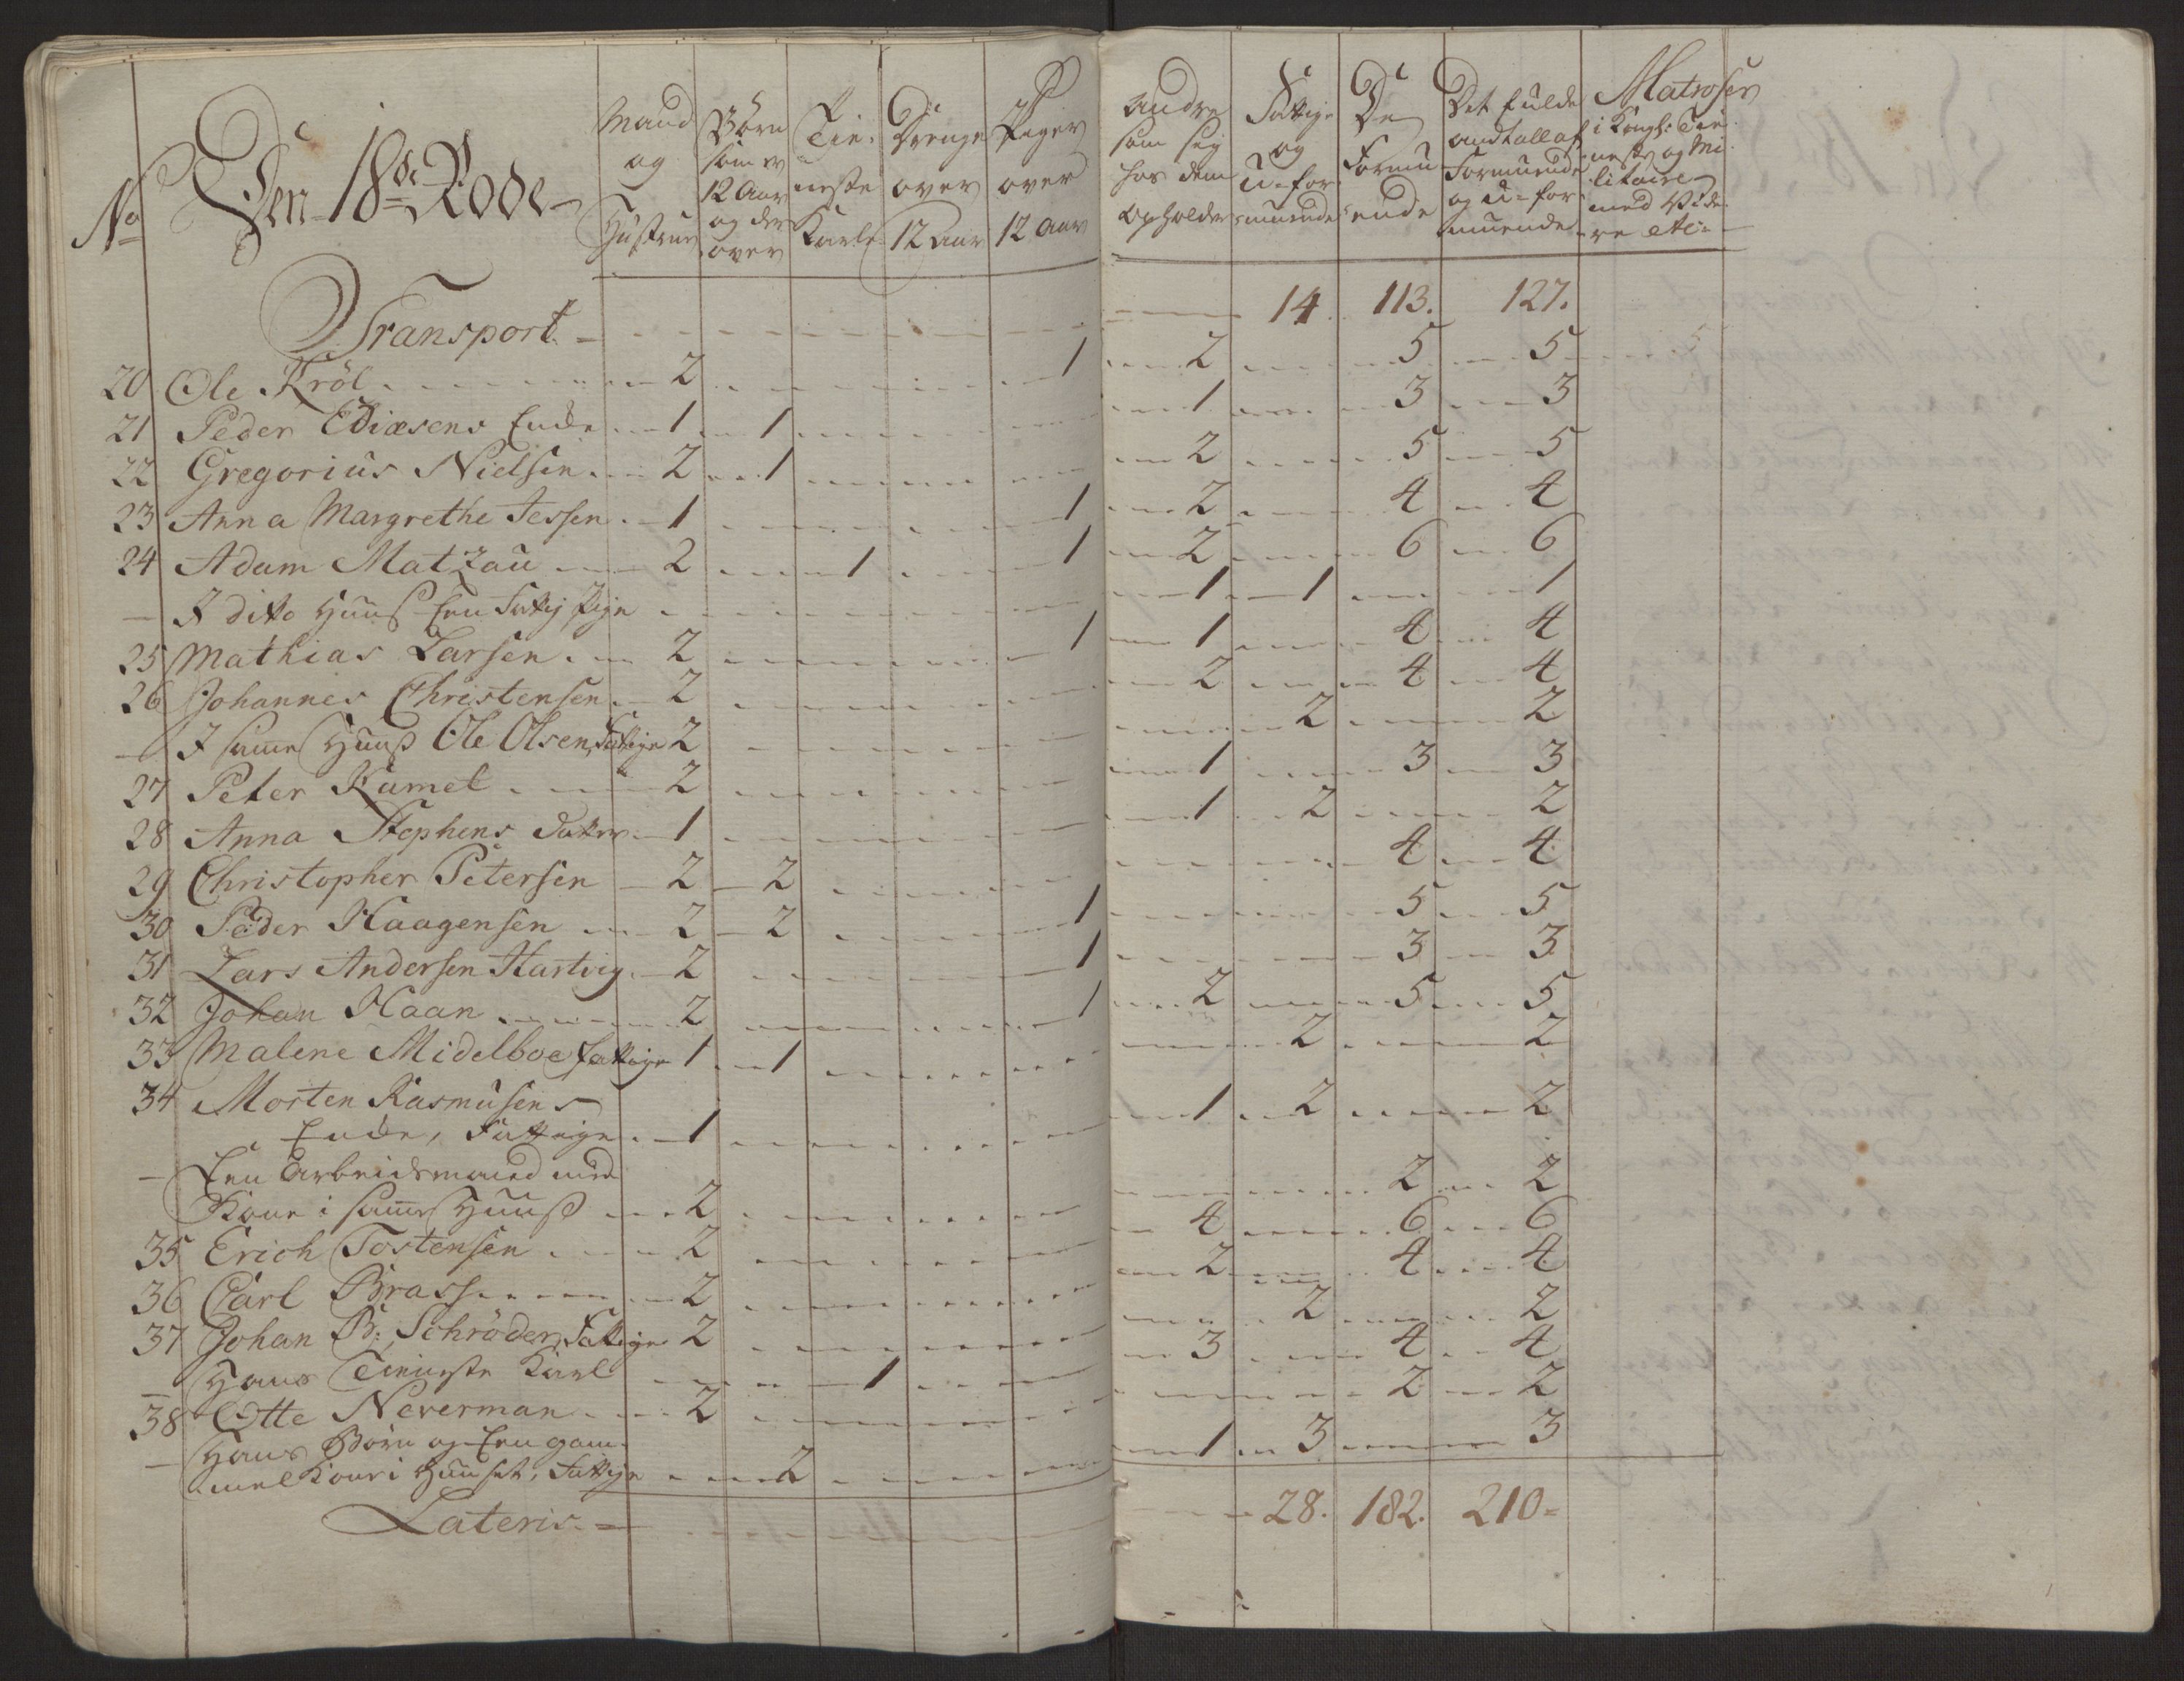 No
Den 18de Rode
Mand og Hustrue
Børn som er 12 Aar og der over
Tieneste Karle
Drenge over 12 Aar
Piger over 12 Aar
Andre som sig hos dem opholder
Fattige og U-formuende
De Formuende
Det fulde andtall af Formuende og U-formuende
Matroser i Kongl: Tieneste og Militaire med Videre etc:
Transport 14. 113. 127.
20 Ole Kröl 2 1 2 5 5
21 Peder Ediæsens Enche 1 1 1 3 3
22 Gregorius Nielsen 2 1 2 5 5
23 Anna Margrethe Jessen 1 1 2 4 4
24 Adam Matzau 2 1 1 2 6 6
I dito Huus Een Fattig Pige 1 1 1
25 Mathias Larsen 2 1 1 4 4
26 Johannes Christensen 2 2 4 4
I samme Huus Ole Olsen, Fattige 2 2 2
27 Peter Kumel 2 1 3 3
28 Anna Stephens 1 1 2 2
29 Christopher Petersen 2 2 4 4
30 Peder Haagensen 2 2 1 5 5
31 Lars Andersen Hartvig 2 1 3 3
32 Johan Haan 2 1 2 5 5
33 Malene Midelboe fattige 1 1 2 2
34 Morten Rasmusens
Enche, Fattige 1 1 2 2
Een Arbeidsmand med
Kone i samme Huus 2 2 2
35 Erich Tostensen 2 4 6 6
36 Carl Brass 2 2 4 4
37 Johan B: Schröder, Fattige 2 2 2
Hans Tieneste Karl 1 3 4 4
38 Otte Neverman 2 2 2
Hans Børn og Een gam-
mel Kone i Huuset, Fattige 2 1 3 3
Lateris 28. 182. 210